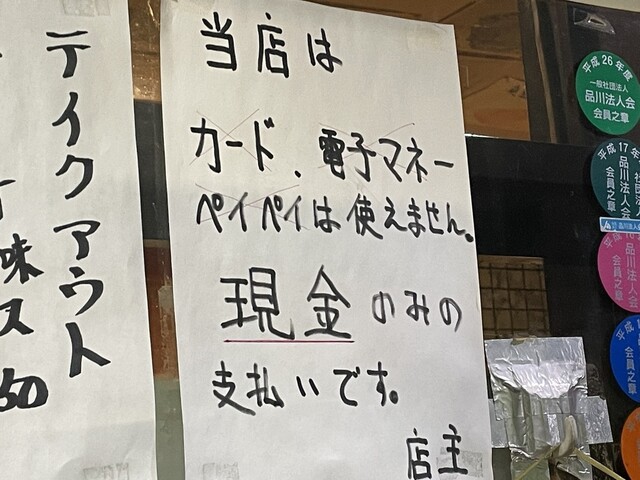 当店は
カード、電子マネー
ペイペイは使えません。
現金のみの
支払いです。
店主
テイクアウト
味ス
50
平成26年度
一般社団法人
品川法人会
会員之章
平成17年
社団法人
品川法人会
会員之章
品川法人会
法人会
会員之章
平成
会員之章